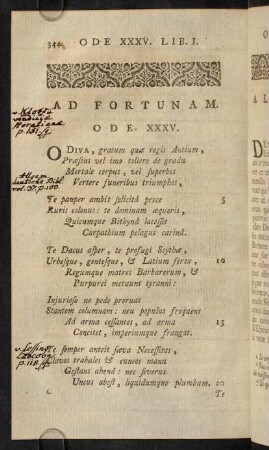 344 ODE XXXV. LIB. I.
AD FORTUNAM.
ODE XXXV.
O DIVA, gratum quæ regis Antium,
Præsens vel imo tollere de gradu
Mortale corpus, vel superbos
Vertere funeribus triumphos,
Te pauper ambit sollicitâ prece 5
Ruris colonus: te dominam æquoris,
Quicumque Bithynâ lacessit
Carpathium pelagus carinâ.
Te Dacus asper, te profugi Scythæ,
Urbesque, gentesque, & Latium ferox, 10
Regumque matres Barbarorum, &
Purpurei metuunt tyranni:
Injurioso ne pede proruat
Stantem columnam: neu populus frequens
Ad arma cessantes, ad arma 15
Concitet, imperiumque frangat.
Te semper anteit sæva Necessitas,
Clavos trabales & cuneos manu
Gestans ahenâ: nec severus
Uncus abest, liquidumque plumbum. 20
Te
v. Klotz
p. 181.
vol. IV. p. 100.
v. Lessings
Laocoon
p. 118.